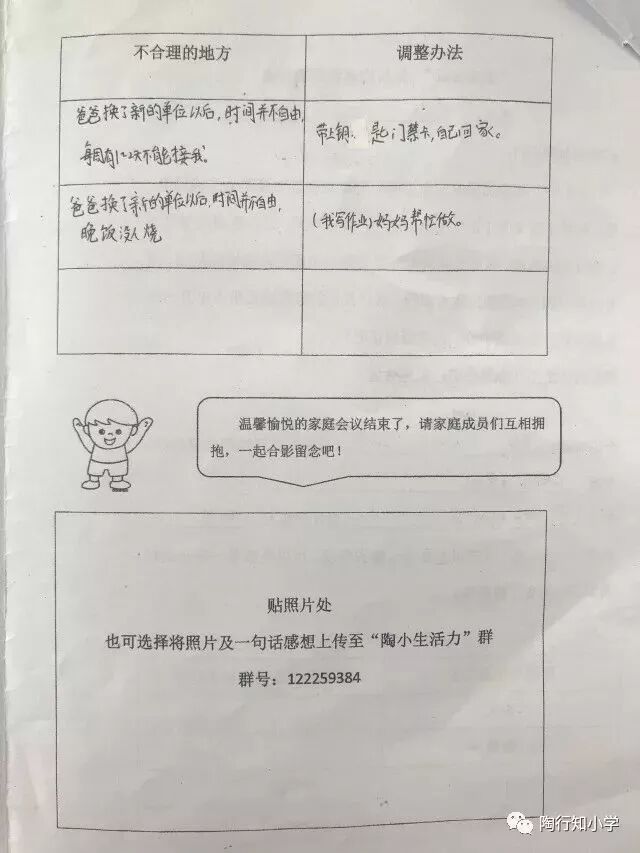 不合理的地方 调整办法
爸爸换了新的单位以后,时间并不自由,
每周有1~2天不能接我。
带上钥匙门禁卡,自己回家。
爸爸换了新的单位以后,时间并不自由,
晚饭没人烧
(我写作业)妈妈帮忙做。
温馨愉悦的家庭会议结束了,请家庭成员们互相拥
抱,一起合影留念吧!
贴照片处
也可选择将照片及一句话感想上传至“陶小生活力”群
群号:122259384
陶行知小学